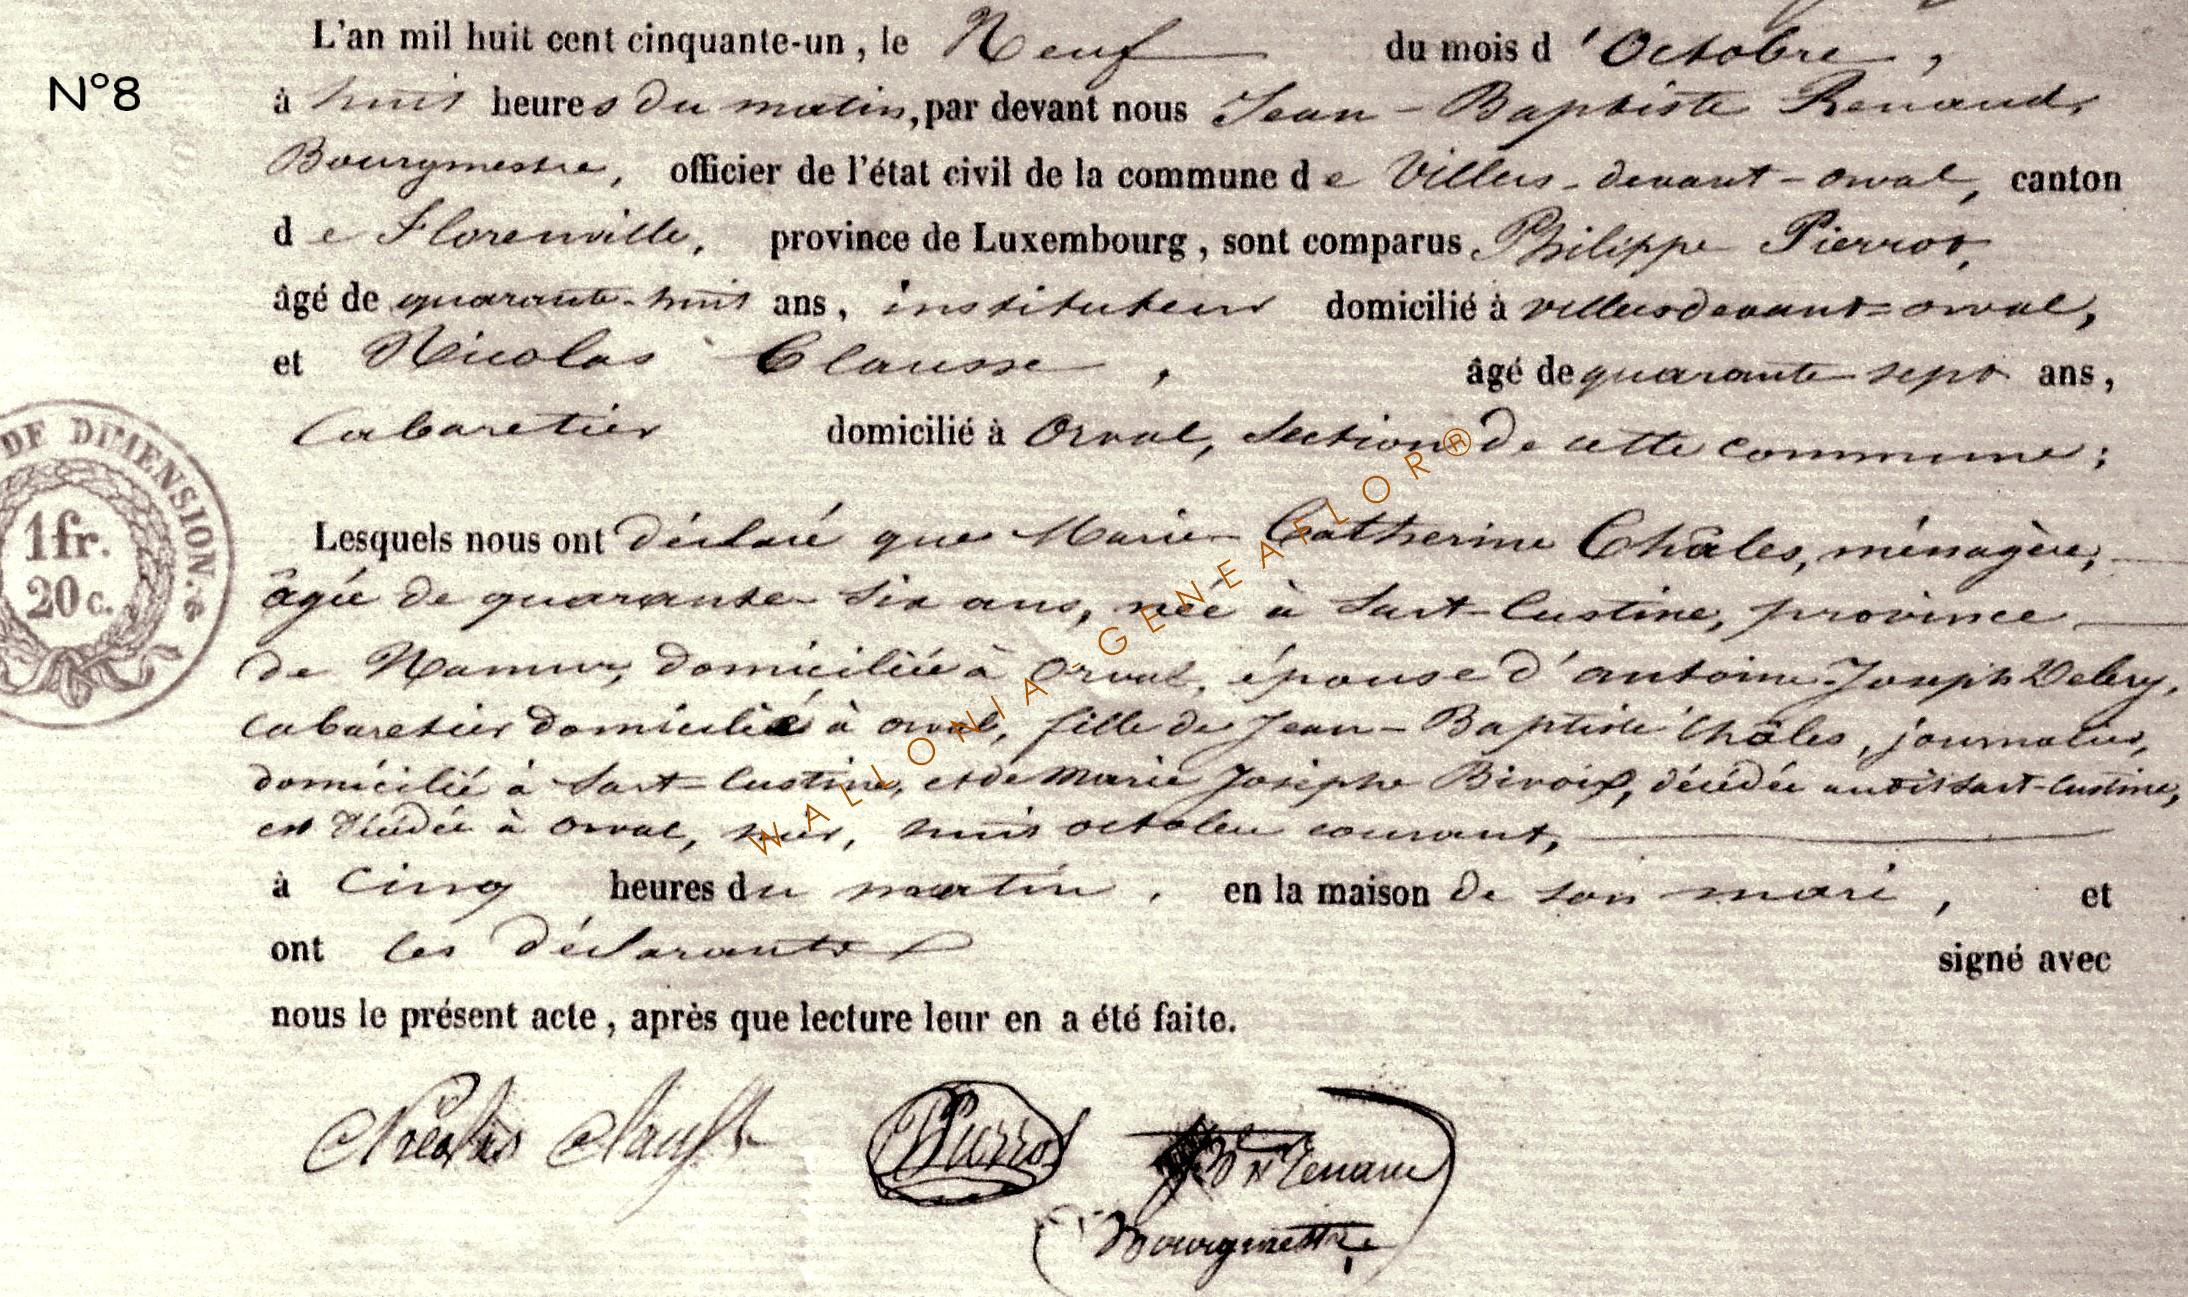 L'an mil huit cent cinquante-un, le Neuf du mois d'Octobre,
N°8
à huit heures du matin, par devant nous Jean-Baptiste Renaud,
Bourgmestre, officier de l'état civil de la commune de Villers-devant-orval, canton
de Florenville, province de Luxembourg, sont comparus Philippe Pierrot,
âgé de quarante-huit ans, instituteur domicilié à villersdevant-orval,
et Nicolas Clausse, âgé de quarante sept ans,
Cabaretier domicilié à Orval, Section de cette commune;
Lesquels nous ont déclaré que Marie Catherine Châles, ménagère,
âgée de quarante six ans, née à Sart-Custine, province
de Namur, domiciliée à Orval, épouse d'antoine Joseph
cabaretier domicilié à orval, fille de Jean-Baptiste Châles, journalier,
domicilié à Sart-Custine, et de Marie Josephe décédée audit Sart-Custine,
est décédée à orval, hier, huit octobre courant,
à Cinq heures du matin, en la maison de son mari, et
ont les déclarants signé avec
nous le présent acte, après que lecture leur en a été faite.
Nicolas Clausse Pierrot Renaud
Bourgmestre
DE DIMENSION.
1fr.
20 c.
WALLONIA-GENEAFLOR®